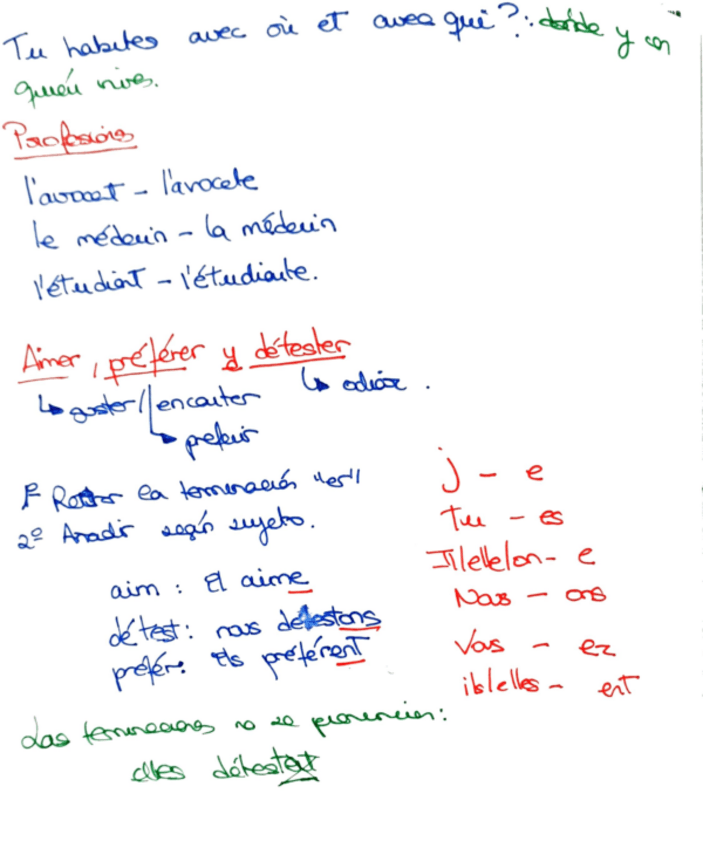 Tu habites avec où et avec qui?: donde y con
quién vives.
Profesions
l'avocat - l'avocate
le médecin - la médecin
l'étudiant - l'étudiante.
Aimer, préférer y détester
↳ gustar//encantar ↳ odiar.
↳ preferir
1º Restar la terminación "er"
2º Anadir según sujeto.
j - e
Tu - es
Il/elle/on - e
Nous - ons
Vous - ez
ils/elles - ent
aim: Il aime
détest: nous détestons
préfér: ils préférent
Las terminaciones no se pronuncian:
elles détestent